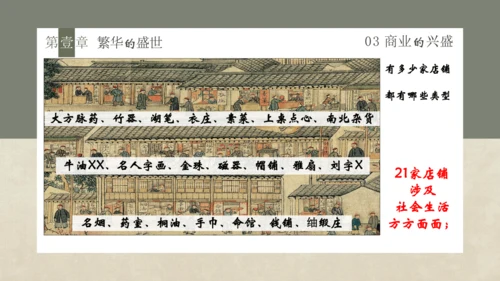 第壹章 繁华的盛世
03 商业的兴盛
有多少家店铺
都有哪些类型
大方脉药、竹器、湖笔、衣庄、素菜、上桌点心、南北杂货
牛油XX、名人字画、金珠、磁器、帽铺、雅扇、刘字X
名烟、药室、桐油、手巾、命馆、钱铺、绸缎庄
21家店铺
涉及
社会生活
方方面面；